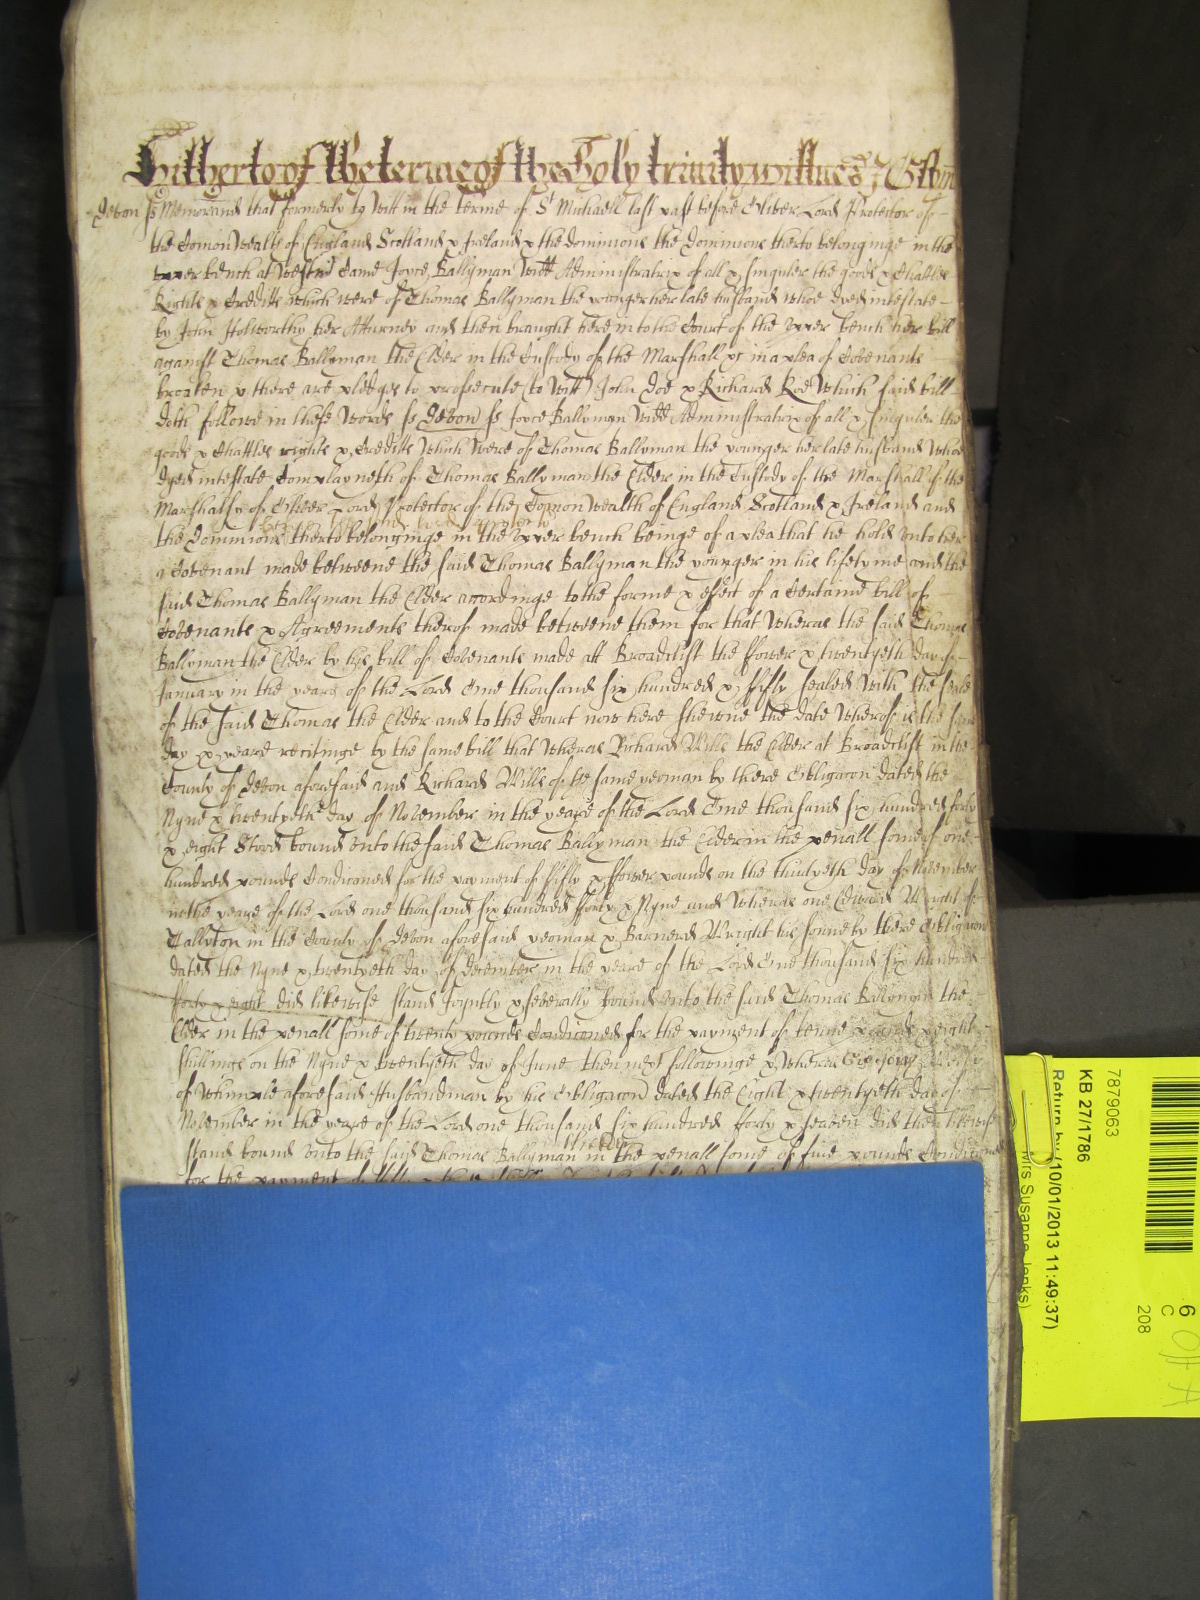 Hitherto of the terme of the Holy trinity witnes
Devon ss Memorand that formerly to Witt in the terme of St Michaell last past before Oliver Lord Protector of
the Comon Wealth of England Scotland & Ireland & the dominions the dominions therto belonginge in the
upper bench at Westmr Came Joyce Ballyman Widd Administratrix of all & singuler the goods & Chattles
Rights & Creditts which were of Thomas Ballyman the younger her late husband whoe dyed intestate
by John Holworthy her Atturney and then braught here into the Court of the upper bench her bill
against Thomas Ballyman the Elder in the Custody of the Marshall &c in a plea of Covenants
broaken & there are pledges to prosecute (to Witt) John Doe & Richard Roe Which said bill
doth followe in these Words ss Devon ss Joyce Ballyman Widd Administratrix of all & singuler the
goods & Chattles rights & Creditts Which Were of Thomas Ballyman the younger her late husband Whoe
dyed intestate Complayneth of Thomas Ballyman the Elder in the Custody of the Marshall of the
Marshalsy of Oliver Lord Protector of the Comon Wealth of England Scotland & Ireland and
the Dominions therto belonginge in the upper bench beinge of a plea that he hold unto her
a Covenant made betweene the said Thomas Ballyman the younger in his lifetyme and the
said Thomas Ballyman the Elder accordinge to the forme & effect of a Certaine bill of
Covenants & Agreements therof made betweene them for that Wheras the said Thomas
Ballyman the Elder by his bill of Covenants made att Broadclist the fower & twentyeth day of
January in the yeare of the Lord One thousand six hundred & fifty sealed With the seale
of the said Thomas the Elder and to the Court now here shewne the date Wherof is the same
day & yeare recitinge by the same bill that Wheras Richard Wills the Elder of Broadclist in the
County of Devon aforesaid and Richard Wills of the same yeoman by there Obligacon dated the
Nyne & twentyeth day of November in the yeare of the Lord One thousand six hundred forty
& eight Stood bound unto the said Thomas Ballyman the Elder in the penall some of one
hundred pounds Condiconed for the payment of fifty & fower pounds on the thirtyeth day of November
in the yeare of the Lord one thousand six hundred forty & Nyne and Wheras one Edward Wright of
Tallyton in the County of Devon aforesaid yeoman & Barnerd Wright his sonne by there Obligacon
dated the Nyne & twentyeth day of December in the yeare of the Lord One thousand six hundred
forty & eight did likewise stand Joyntly & severally bound unto the said Thomas Ballyman the
Elder in the penall some of twenty pounds Condiconed for the payment of tenne pounds & eight
shillings on the Nyne & twentyeth day of June then next followinge & Wheras Gregory
of Whimple aforesaid Husbandman by his Obligacon dated the Eight & twentyeth day of
November in the yeare of the Lord one thousand six hundred forty & seaven did then likewise
stand bound unto the said Thomas Ballyman the Elder in the penall some of five pounds Condiconed
for the payment of fifty
7879063
KB 27/1786
Return by (10/01/2013 11:49:37)
Mrs Susanne Jenks)
6
C
208